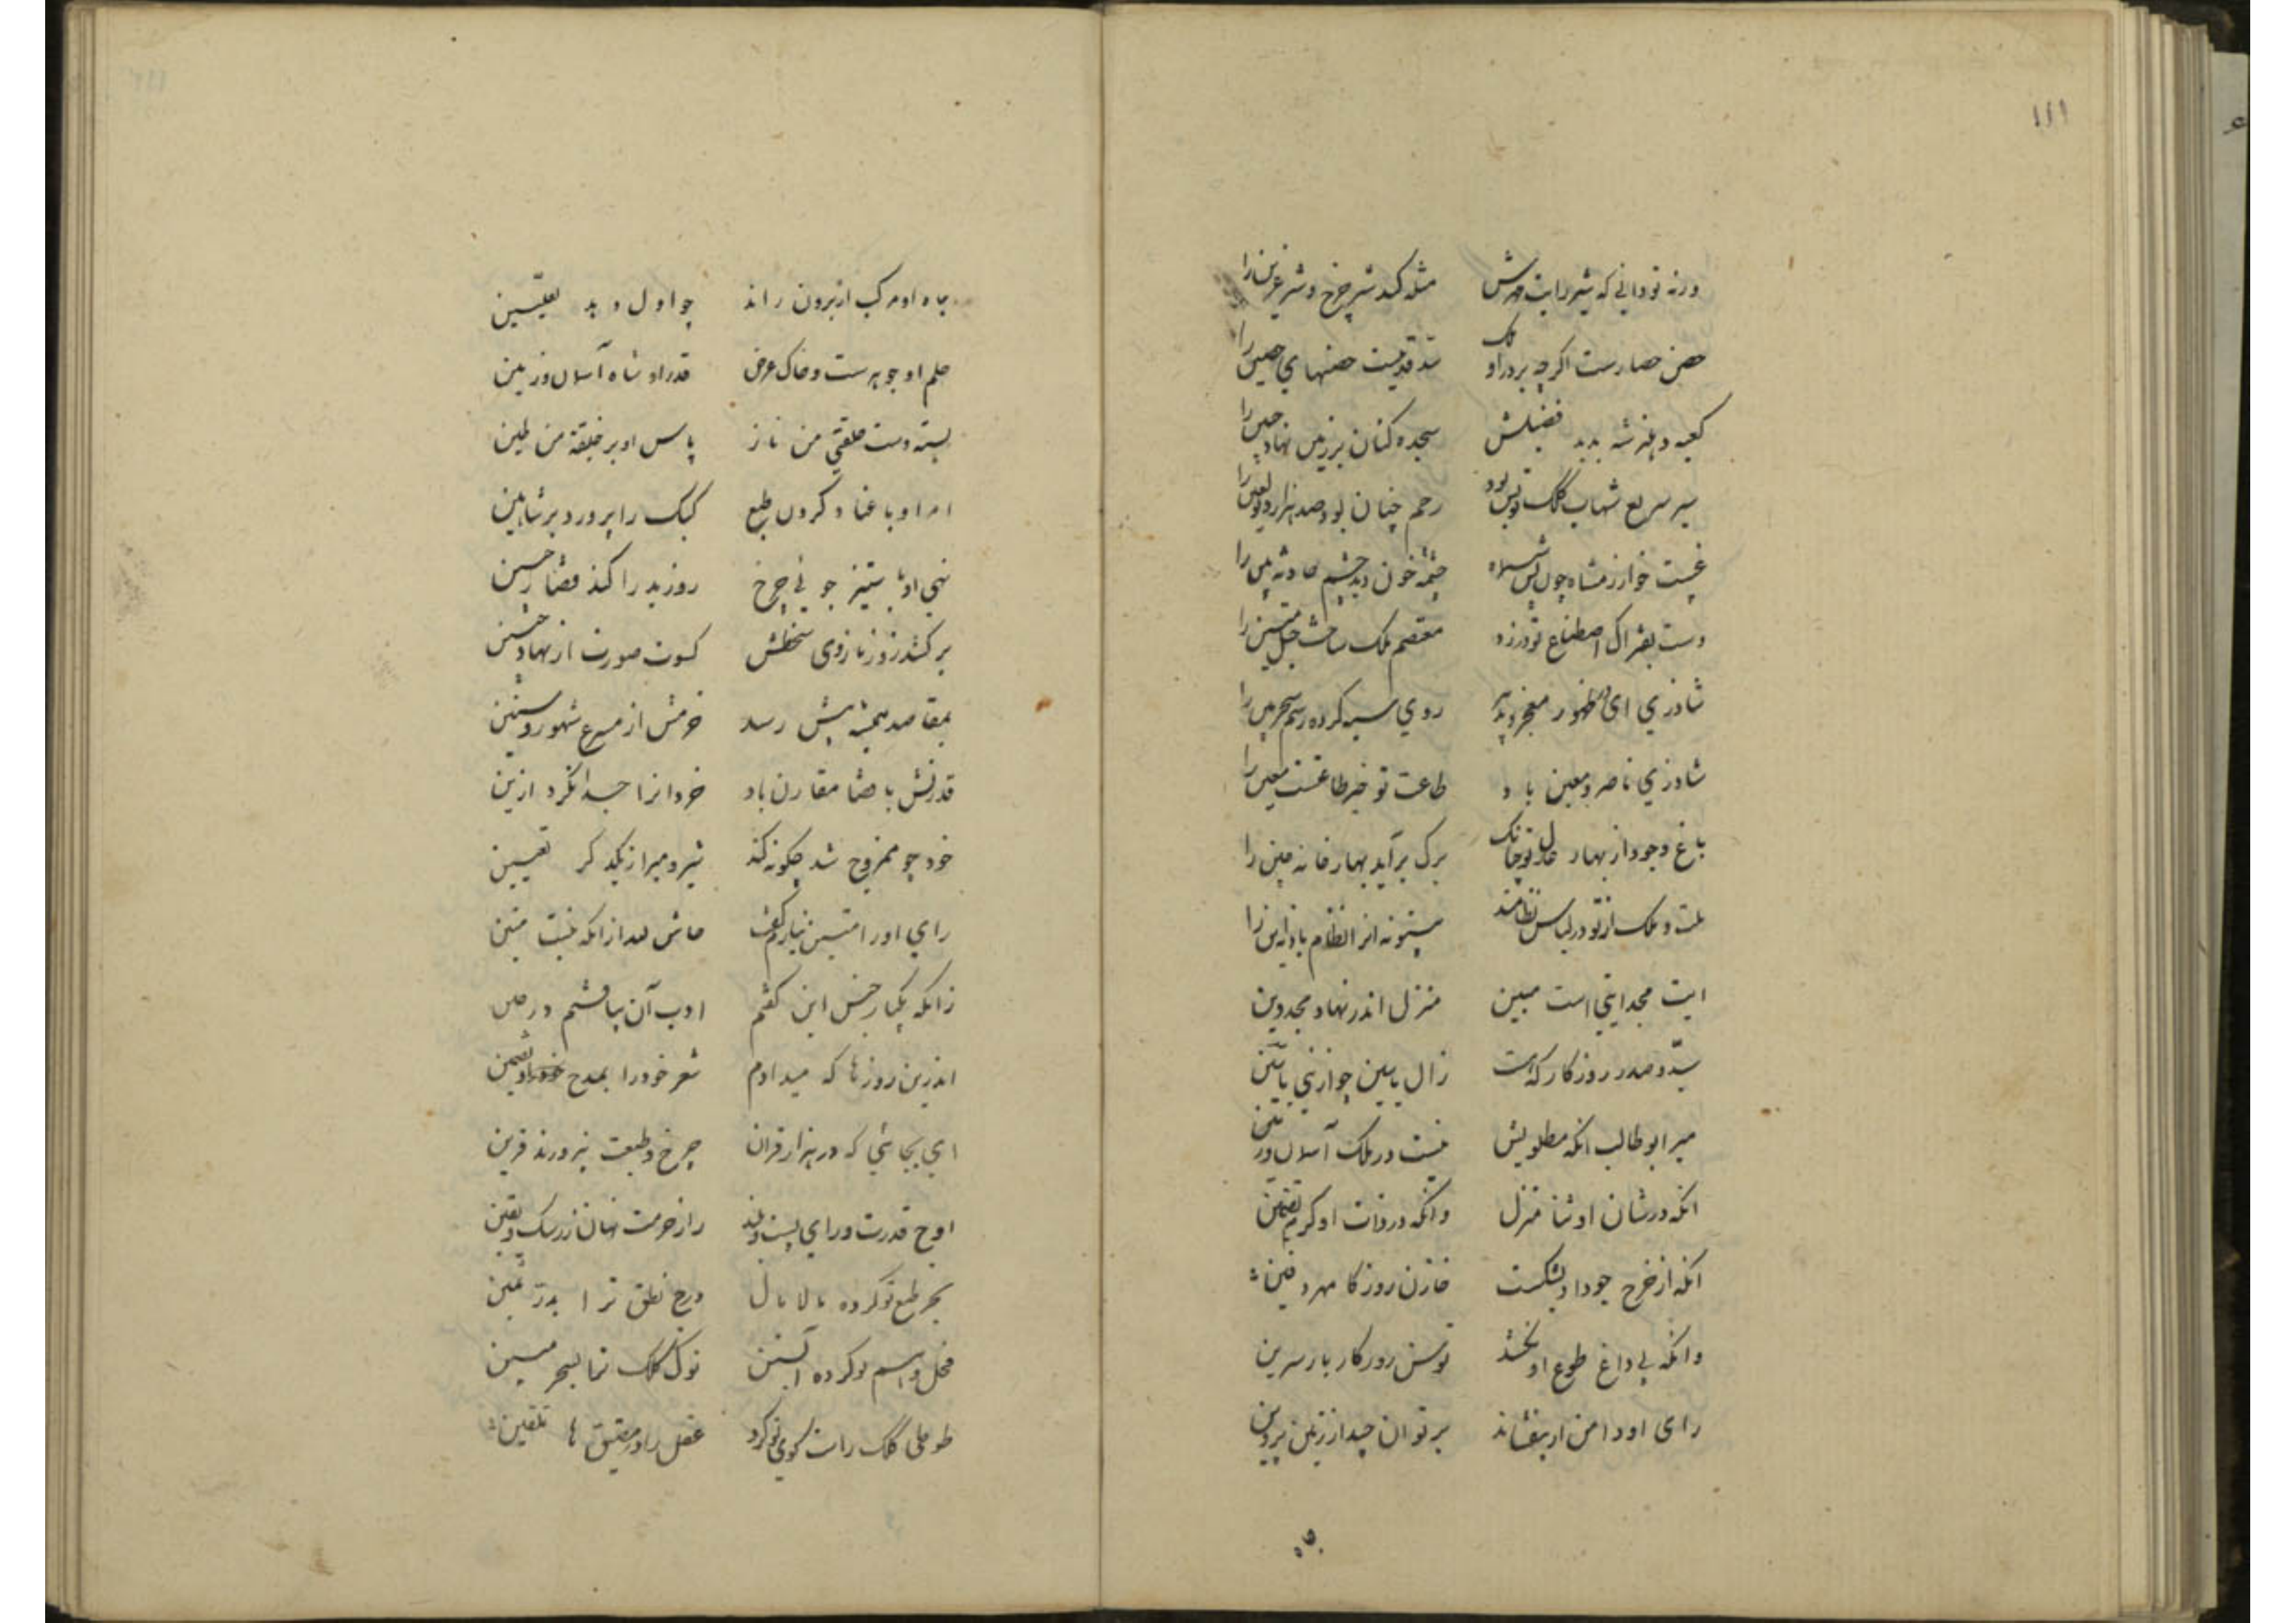 ١١١
ورنه تو دانی که شیر رایت قهرش مثله کند شیر چرخ و شیر عرین را
حصن حصارست اگرچه بر در او سد قدیمیست حصنهای حصین را
کعبه دهلیز شه بدید فضیلش سجده کنان بر زمین نهاد جبین را
سیر سریع شهاب کلک تو بس بود رجم چنان بود صد هزار دیو لعین را
غیبت خوارزمشاه چون پس شش ماه چشمه خون دید چشم حادثه بین را
دست بفتراک اصطناع تو در زد معتصم ملک ساخت حبل متین را
شاد زی ای در ظهور معجز تدبیر روی سیه کرده رسم سحر مبین را
شاد زی ناصر و معین باد طاعت تو خیر طاعتست معین را
باغ وجود از بهار عدل تو چونانک برک برآید بهارخانه چین را
ملت و ملک از تو در لباس نظامند بی‌تو نه انرا نظام باد نه این را
ایت مجد ایتی است مبین منزل اندر نهاد مجد دین
سید و صدر روزکار که هست زال یاسین چو از نبی یاسین
میر ابو طالب انکه مطلوبش نیست در ملک آسمان و زمین
انکه در شان او ثنا منزل وانکه در ذات او کرم تضمین
انکه از خرج جود او بشکست خازن روزکار مهر دفین
وانکه بی داغ طوع او نخشد توسن روزکار بار سرین
رای او دامن ار بیفشاند بر توان چید از زمین پروین
جاه او مرکب از برون راند چو اول دید تعیین
حلم او جوهرست و خاک عرض قدر او شاه آسمان و زمین
بسته دست خلقتی من نار پاس او بر خلقته من طین
امر او با عناد کردون طبع کبک را پرورد بر شاهین
نهی او با ستیزه جویی چرخ روز بد را کند قضا رحسین
برکشد روز نا روی سخطش کسوت صورت از نهاد جنین
بمقاصد همیشه پیش رسد حزمش از مسرع شهور و سنین
قدرتش با قضا مقارن باد خرد انرا جدا نکرد ازین
خود چو ممزوج شد چکونه کند شیر و می را ز یکدکر تعیین
رای او را متین نیارم کفت حاش لله از انکه نیست متین
زانکه یکبار جنس این کفتم ادب آن بیافتم در حین
اندرین روزها که میدادم شعر خود را بمدح او تضمین
ای بجائی که در هزار قران چرخ و طبعت نپرورند قرین
اوج قدرت ورای پست و بلند راز حزمت نهان ز شک و یقین
بحر طبع تو کرده مالامال درج نطق ترا بدر ثمین
فحل و اسم تو کرده ابستن نوک کلک ترا بسحر مبین
طوطی کلک راست کوی تو کرد عقل را در مضیق ها تلقین